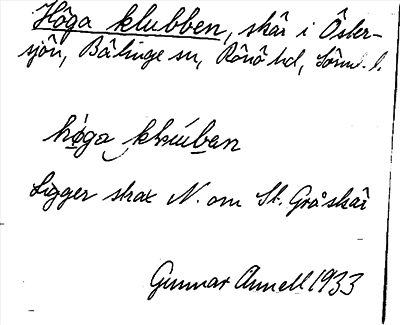 Höga klubben, skär i Öster-
sjön, Bälinge sn, Rönö hd, Söml. l.
höga klɯban
Ligger strax N. om St. Gråskär
Gunnar Annell 1933